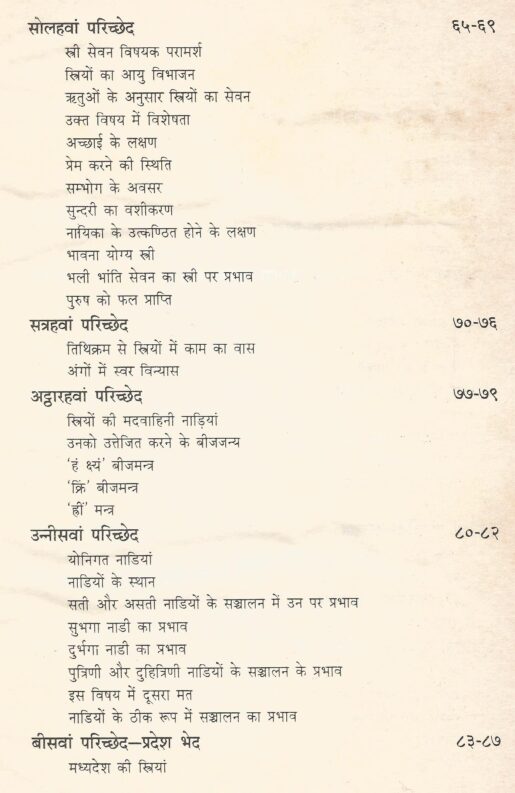 सोलहवां परिच्छेद ६५-६९
स्त्री सेवन विषयक परामर्श
स्त्रियों का आयु विभाजन
ऋतुओं के अनुसार स्त्रियों का सेवन
उक्त विषय में विशेषता
अच्छाई के लक्षण
प्रेम करने की स्थिति
सम्भोग के अवसर
सुन्दरी का वशीकरण
नायिका के उत्कण्ठित होने के लक्षण
भावना योग्य स्त्री
भली भांति सेवन का स्त्री पर प्रभाव
पुरुष को फल प्राप्ति
सत्रहवां परिच्छेद ७०-७६
तिथिक्रम से स्त्रियों में काम का वास
अंगों में स्वर विन्यास
अट्ठारहवां परिच्छेद ७७-७९
स्त्रियों की मदवाहिनी नाड़ियां
उनको उत्तेजित करने के बीजजन्य
‘हं क्ष्यं’ बीजमन्त्र
‘क्रिं’ बीजमन्त्र
‘ह्रीं’ मन्त्र
उन्नीसवां परिच्छेद ८०-८२
योनिगत नाडियां
नाडियों के स्थान
सती और असती नाडियों के सञ्चालन में उन पर प्रभाव
सुभगा नाडी का प्रभाव
दुर्भगा नाडी का प्रभाव
पुत्रिणी और दुहित्रिणी नाडियों के सञ्चालन के प्रभाव
इस विषय में दूसरा मत
नाडियों के ठीक रूप में सञ्चालन का प्रभाव
बीसवां परिच्छेद—प्रदेश भेद ८३-८७
मध्यदेश की स्त्रियां